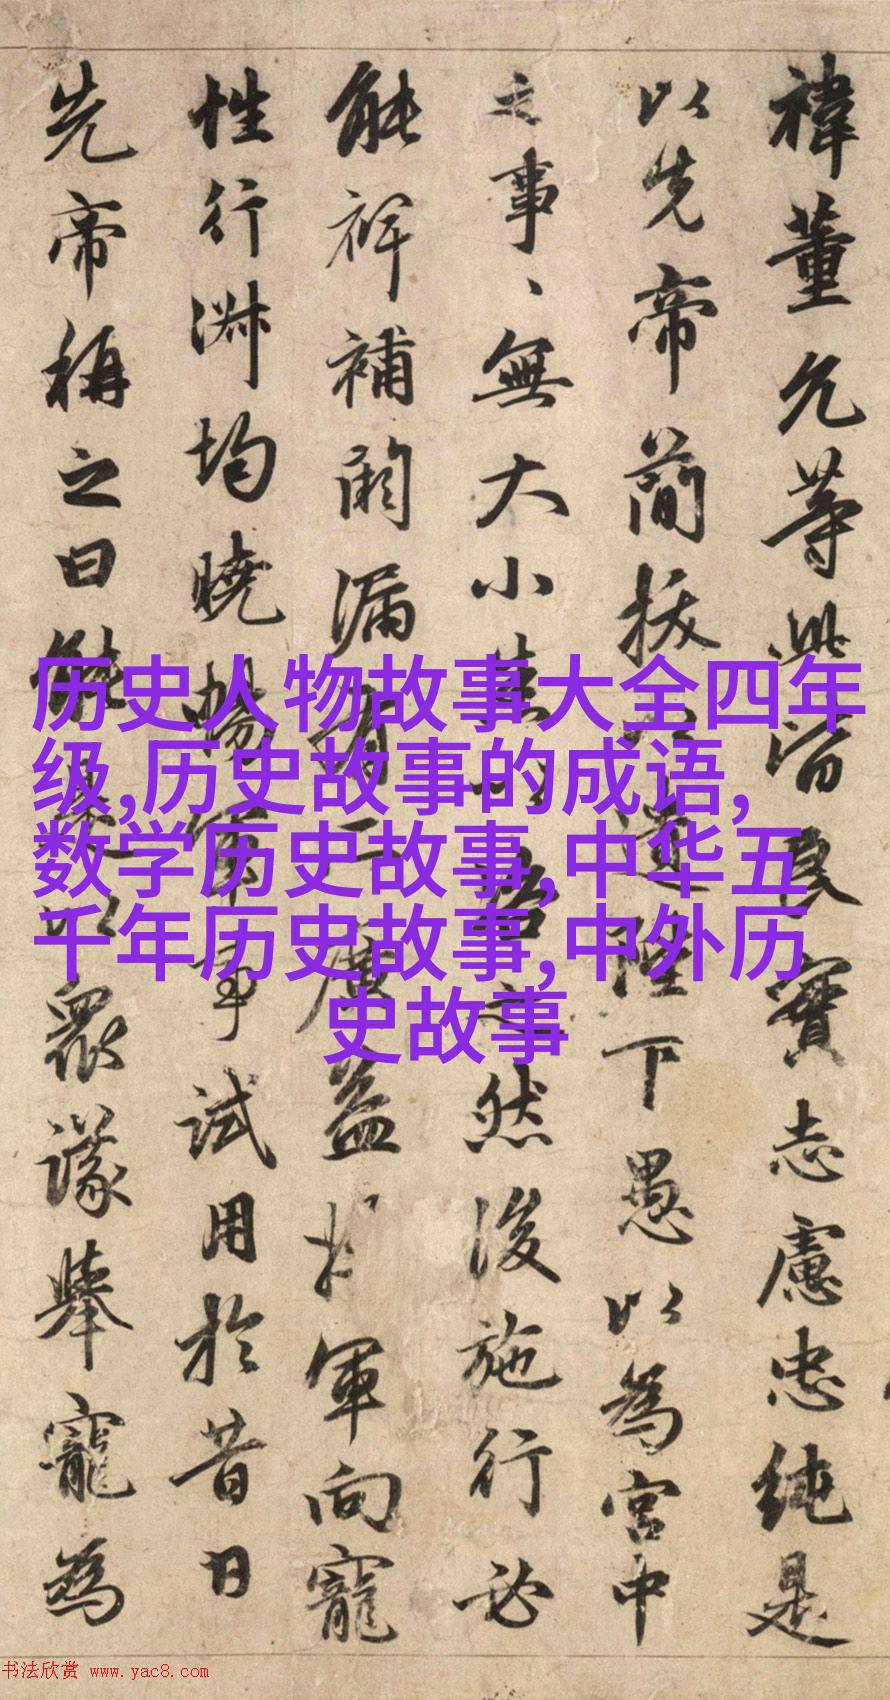 禕董允等此皆良實志慮忠純是
以先帝簡拔以遺陛下愚以為宮中
之事、無大小悉以咨之然後施行必
能裨補闕漏有廣益軍向寵
性行淑均曉暢軍事試用於昔日
先帝稱之曰能是以衆議舉寵為
历史人物故事大全四年
级,历史故事的成语,
数学历史故事,中华五
千年历史故事,中外历
史故事
书法欣赏 www.yac8.com